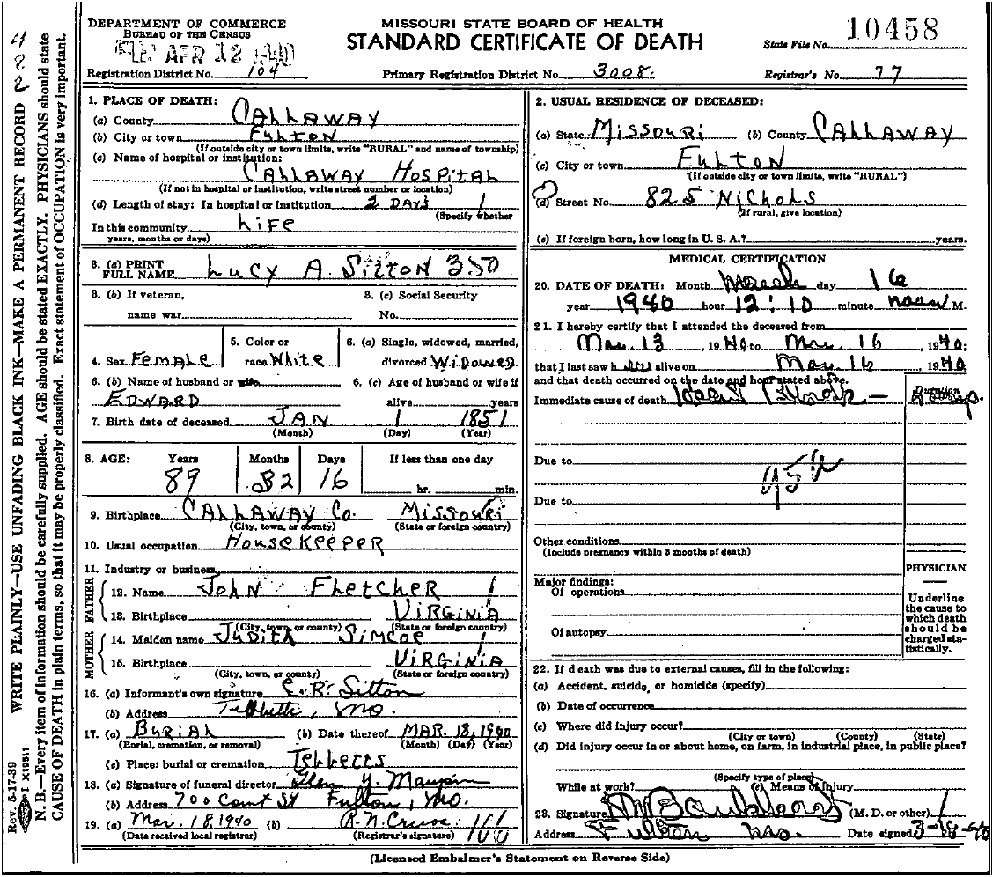 DEPARTMENT OF COMMERCE
BUREAU OF THE CENSUS
APR 12 1940
Registration District No. 104
MISSOURI STATE BOARD OF HEALTH
STANDARD CERTIFICATE OF DEATH
Primary Registration District No. 3008.
State File No. 10458
Registrar's No. 77
WRITE PLAINLY—USE UNFADING BLACK INK—MAKE A PERMANENT RECORD
N. B.—Every item of information should be carefully supplied. AGE should be stated EXACTLY. PHYSICIANS should state
CAUSE OF DEATH in plain terms, so that it may be properly classified. Exact statement of OCCUPATION is very important.
Rev. 5-17-39
1. PLACE OF DEATH:
(a) County CALLAWAY
(b) City or town FULTON
(If outside city or town limits, write "RURAL" and name of township)
(c) Name of hospital or institution:
CALLAWAY HOSPITAL
(If not in hospital or institution, write street number or location)
(d) Length of stay: In hospital or institution 2 DAYS
(Specify whether
In this community LIFE
years, months or days)
3. (a) PRINT FULL NAME LUCY A. SITTON 350
3. (b) If veteran, name war
3. (c) Social Security No.
4. Sex FEMALE
5. Color or race WHITE
6. (a) Single, widowed, married, divorced WIDOWED
6. (b) Name of husband or wife
EDWARD
6. (c) Age of husband or wife if alive years
7. Birth date of deceased JAN 1 1851
(Month) (Day) (Year)
8. AGE: Years Months Days If less than one day
89 2 16 hr. min.
9. Birthplace CALLAWAY CO. MISSOURI
(City, town, or county) (State or foreign country)
10. Usual occupation HOUSEKEEPER
11. Industry or business
FATHER
12. Name JOHN FLETCHER
13. Birthplace VIRGINIA
(City, town, or county) (State or foreign country)
MOTHER
14. Maiden name JUDITH SIMCOE
15. Birthplace VIRGINIA
(City, town, or county) (State or foreign country)
16. (a) Informant's own signature C. R. Sitton
(b) Address Tebbetts, Mo.
17. (a) BURIAL (b) Date thereof MAR. 18, 1940
(Burial, cremation, or removal) (Month) (Day) (Year)
(c) Place: burial or cremation TEBBETTS
18. (a) Signature of funeral director Glen Y. Maupin
(b) Address 700 Court St Fulton, Mo.
19. (a) Mar. 18 1940 (b) R. N. Crews
(Date received local registrar) (Registrar's signature)
2. USUAL RESIDENCE OF DECEASED:
(a) State MISSOURI (b) County CALLAWAY
(c) City or town FULTON
(If outside city or town limits, write "RURAL")
(d) Street No. 825 NICHOLS
(If rural, give location)
(e) If foreign born, how long in U. S. A.? years.
MEDICAL CERTIFICATION
20. DATE OF DEATH: Month March day 16
year 1940 hour 12:10 minute noon M.
21. I hereby certify that I attended the deceased from
Mar. 13, 1940 to Mar. 16, 1940;
that I last saw h alive on Mar. 16, 1940
and that death occurred on the date and hour stated above.
Immediate cause of death
Duration
Due to
95
Due to
Other conditions
(Include pregnancy within 3 months of death)
Major findings:
Of operations
Of autopsy
PHYSICIAN
Underline
the cause to
which death
should be
charged sta-
tistically.
22. If death was due to external causes, fill in the following:
(a) Accident, suicide, or homicide (specify)
(b) Date of occurrence
(c) Where did injury occur?
(City or town) (County) (State)
(d) Did injury occur in or about home, on farm, in industrial place, in public place?
(Specify type of place)
While at work? (e) Means of injury
23. Signature (M. D. or other)
Address Fulton Mo. Date signed 3-18-40
(Licensed Embalmer's Statement on Reverse Side)